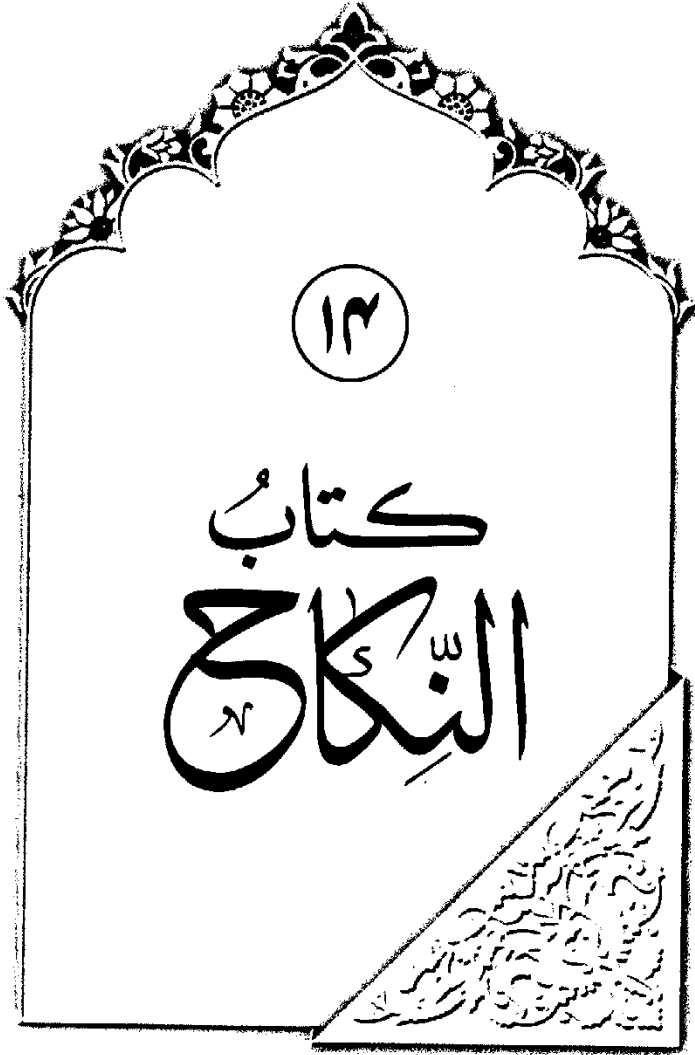 ١٤
كتابُ
النِّكاح